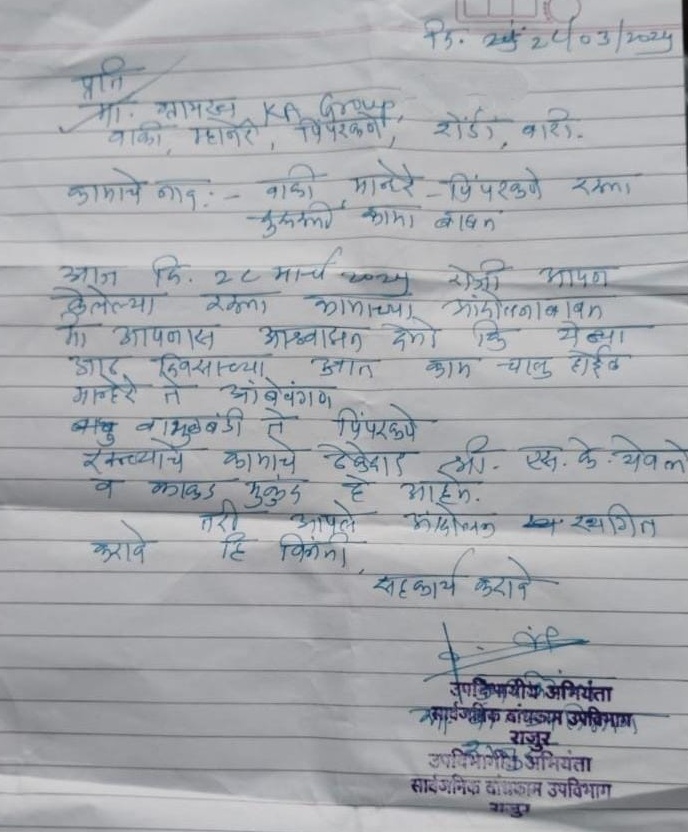 दि. 28/03/2025
प्रति
मा. ग्रामस्थ KA Group,
वाकी, मान्हेरे, पिंपरकणे, शेंडी, वारी.
कामाचे नाव :- वाकी मान्हेरे - पिंपरकणे रस्ता
दुरुस्ती कामा बाबत
आज दि. २८ मार्च २०२५ रोजी आपण
केलेल्या रस्ता कामाच्या आंदोलनाबाबत
मी आपनास आश्वासन देतो कि येत्या
आठ दिवसाच्या आत काम चालु होईल
मान्हेरे ते आंबेवंगण
जामुळबंडी ते पिंपरकणे
रस्त्याचे कामाचे ठेकेदार श्री. एस. के. येवले
व काकड मुकुंद हे आहेत.
तरी आपले आंदोलन स्थगित
करावे हि विनंती,
सहकार्य करावे
उपविभागीय अभियंता
सार्वजनिक बांधकाम उपविभाग
राजुर
उपविभागीय अभियंता
सार्वजनिक बांधकाम उपविभाग
राजुर